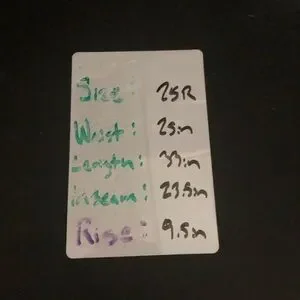 Size: 25R
Waist: 25in
Length: 33in
inseam: 23.5in
Rise: 9.5in